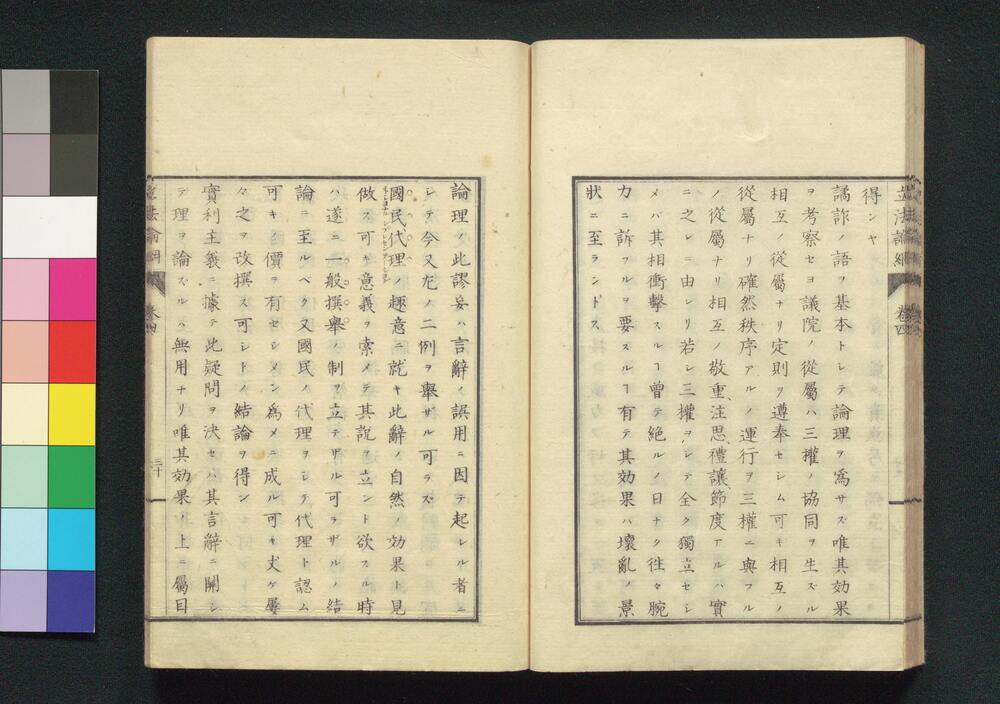 立法論綱 卷四
得ンヤ
譎詐ノ語ヲ基本トシテ論理ヲ為サズ唯其効果
ヲ考察セヨ議院ノ從屬ハ三權ノ協同ヲ生ズル
相互ノ從屬ナリ定則ヲ遵奉セシム可キ相互ノ
從屬ナリ確然秩序アルノ運行ヲ三權ニ與フル
ノ從屬ナリ相互ノ敬重注思禮讓節度アルハ實
ニ之レニ由レリ若シ三權ヲシテ全ク獨立セシ
メバ其相衝擊スルヿ曾テ絕ルノ日ナク往々腕
力ニ訴フルヲ要スルヿ有テ其効果ハ壞亂ノ景
狀ニ至ラントス
論理ノ此謬妄ハ言辭ノ誤用ニ因テ起レル者ニ
シテ今又左ノ二例ヲ舉ザル可ラズ
國民代理ノ趣意ニ就キ此辭ノ自然ノ効果ト見
做ス可キ意義ヲ索メテ其說ヲ立ント欲スル時
ハ遂ニ一般撰舉ノ制ヲ立テザル可ラザルノ結
論ニ至ルベク又國民ノ代理ヲシテ代理ト認ム
可キノ價ヲ有セシメン為メニ成ル可キ丈ケ屢
々之ヲ改撰ス可シトノ結論ヲ得ン
實利主義ニ據テ此疑問ヲ決セハ其言辭ニ關シ
テ理ヲ論ズルハ無用ナリ唯其効果ノ上ニ屬目
立法論綱 卷四 三十